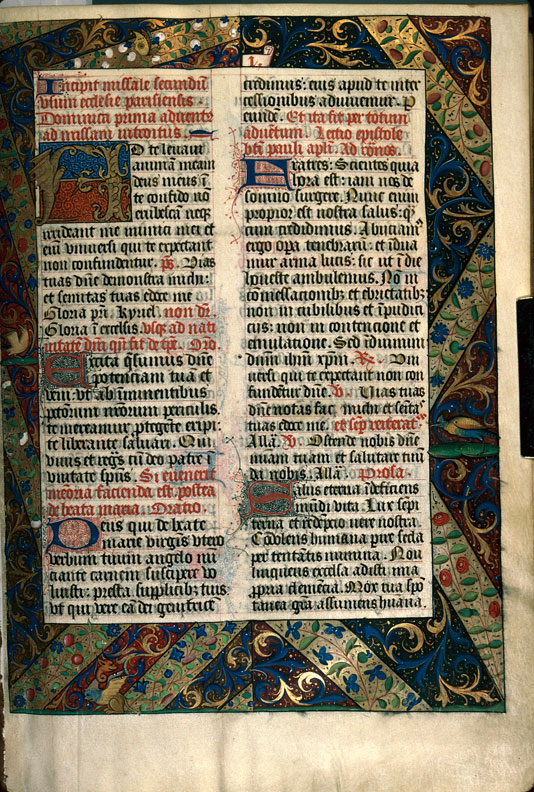 .1.
Incipit missale secundũ
vsum ecclesie parisiensis
Dominica prima aduentꝰ
ad missam introitus
AD te leuaui
animã meam
deus meus ĩ
te confido nõ
erubescã neqꝫ
irrideant me inimici mei et
eñ vniuersi qui te expectant
non confundentur. ps. Vias
tuas dñe demonstra michi:
et semitas tuas edoce me
Gloria pri. Kyriel. non dr̃.
Gloria ĩ excelsis. vsqꝫ ad nati
uitatẽ dñi qñ fit de tpe. Oro.
Excita q̃sumus dñe
potenciam tuã et
veni: vt ab imminentibus
pctorum nrõrum periculis.
te mereamur ꝓtegẽte eripi:
te liberante saluari. Qui
viuis et regñs cũ deo patre ĩ
vnitate spũs. Si euenerit
meoria facienda est. postea
de beata maria. Oratio.
Deus qui de beate
marie virgĩs vtero
verbum tuum angelo nũ
ciante carnem suscipere vo
luisti: presta supplicibꝫ tuis.
vt qui vere eã dei genitricẽ
credimus: eius apud te inter
cessionibus adiuuemur. P
eundẽ. Et ita fit per totum
aduẽtum. Lectio epistole
bti pauli apli. Ad romos.
Fratres: Scientes quia
hora est: iam nos de
somno surgere. Nunc eium
propior est nostra salus: q̃
cum credidimus. Abiciamꝰ
ergo opa tenebrarũ: et ĩdua
mur arma lucis: sic ut ĩ die
honeste ambulemus. Nõ in
cõmessacionibꝫ et ebrietatibꝫ
non in cubilibus et ĩpudici
ciis: non in contencione et
emulatione. Sed ĩduimini
dñm ihm xpm. R. Vni
uersi qui te expectant non con
fundẽtur dñe. V. Vias tuas
dñe notas fac michi et semitas
tuas edoce me. et sep reiterat᷑
Allã. V. Ostende nobis dñe
miam tuam et salutare tuũ
da nobis. Allã. Prosa.
Salus eterna ĩdeficiens
mũdi vita: Lux sepi
terna et redẽpcio vere nostra.
Cõdolens humana pire secla
per tentãtis numina. Non
linquens excelsa adisti ima
ꝓpria clemẽcia. Mox tua spõ
tanea gr̃a assumens huãna.